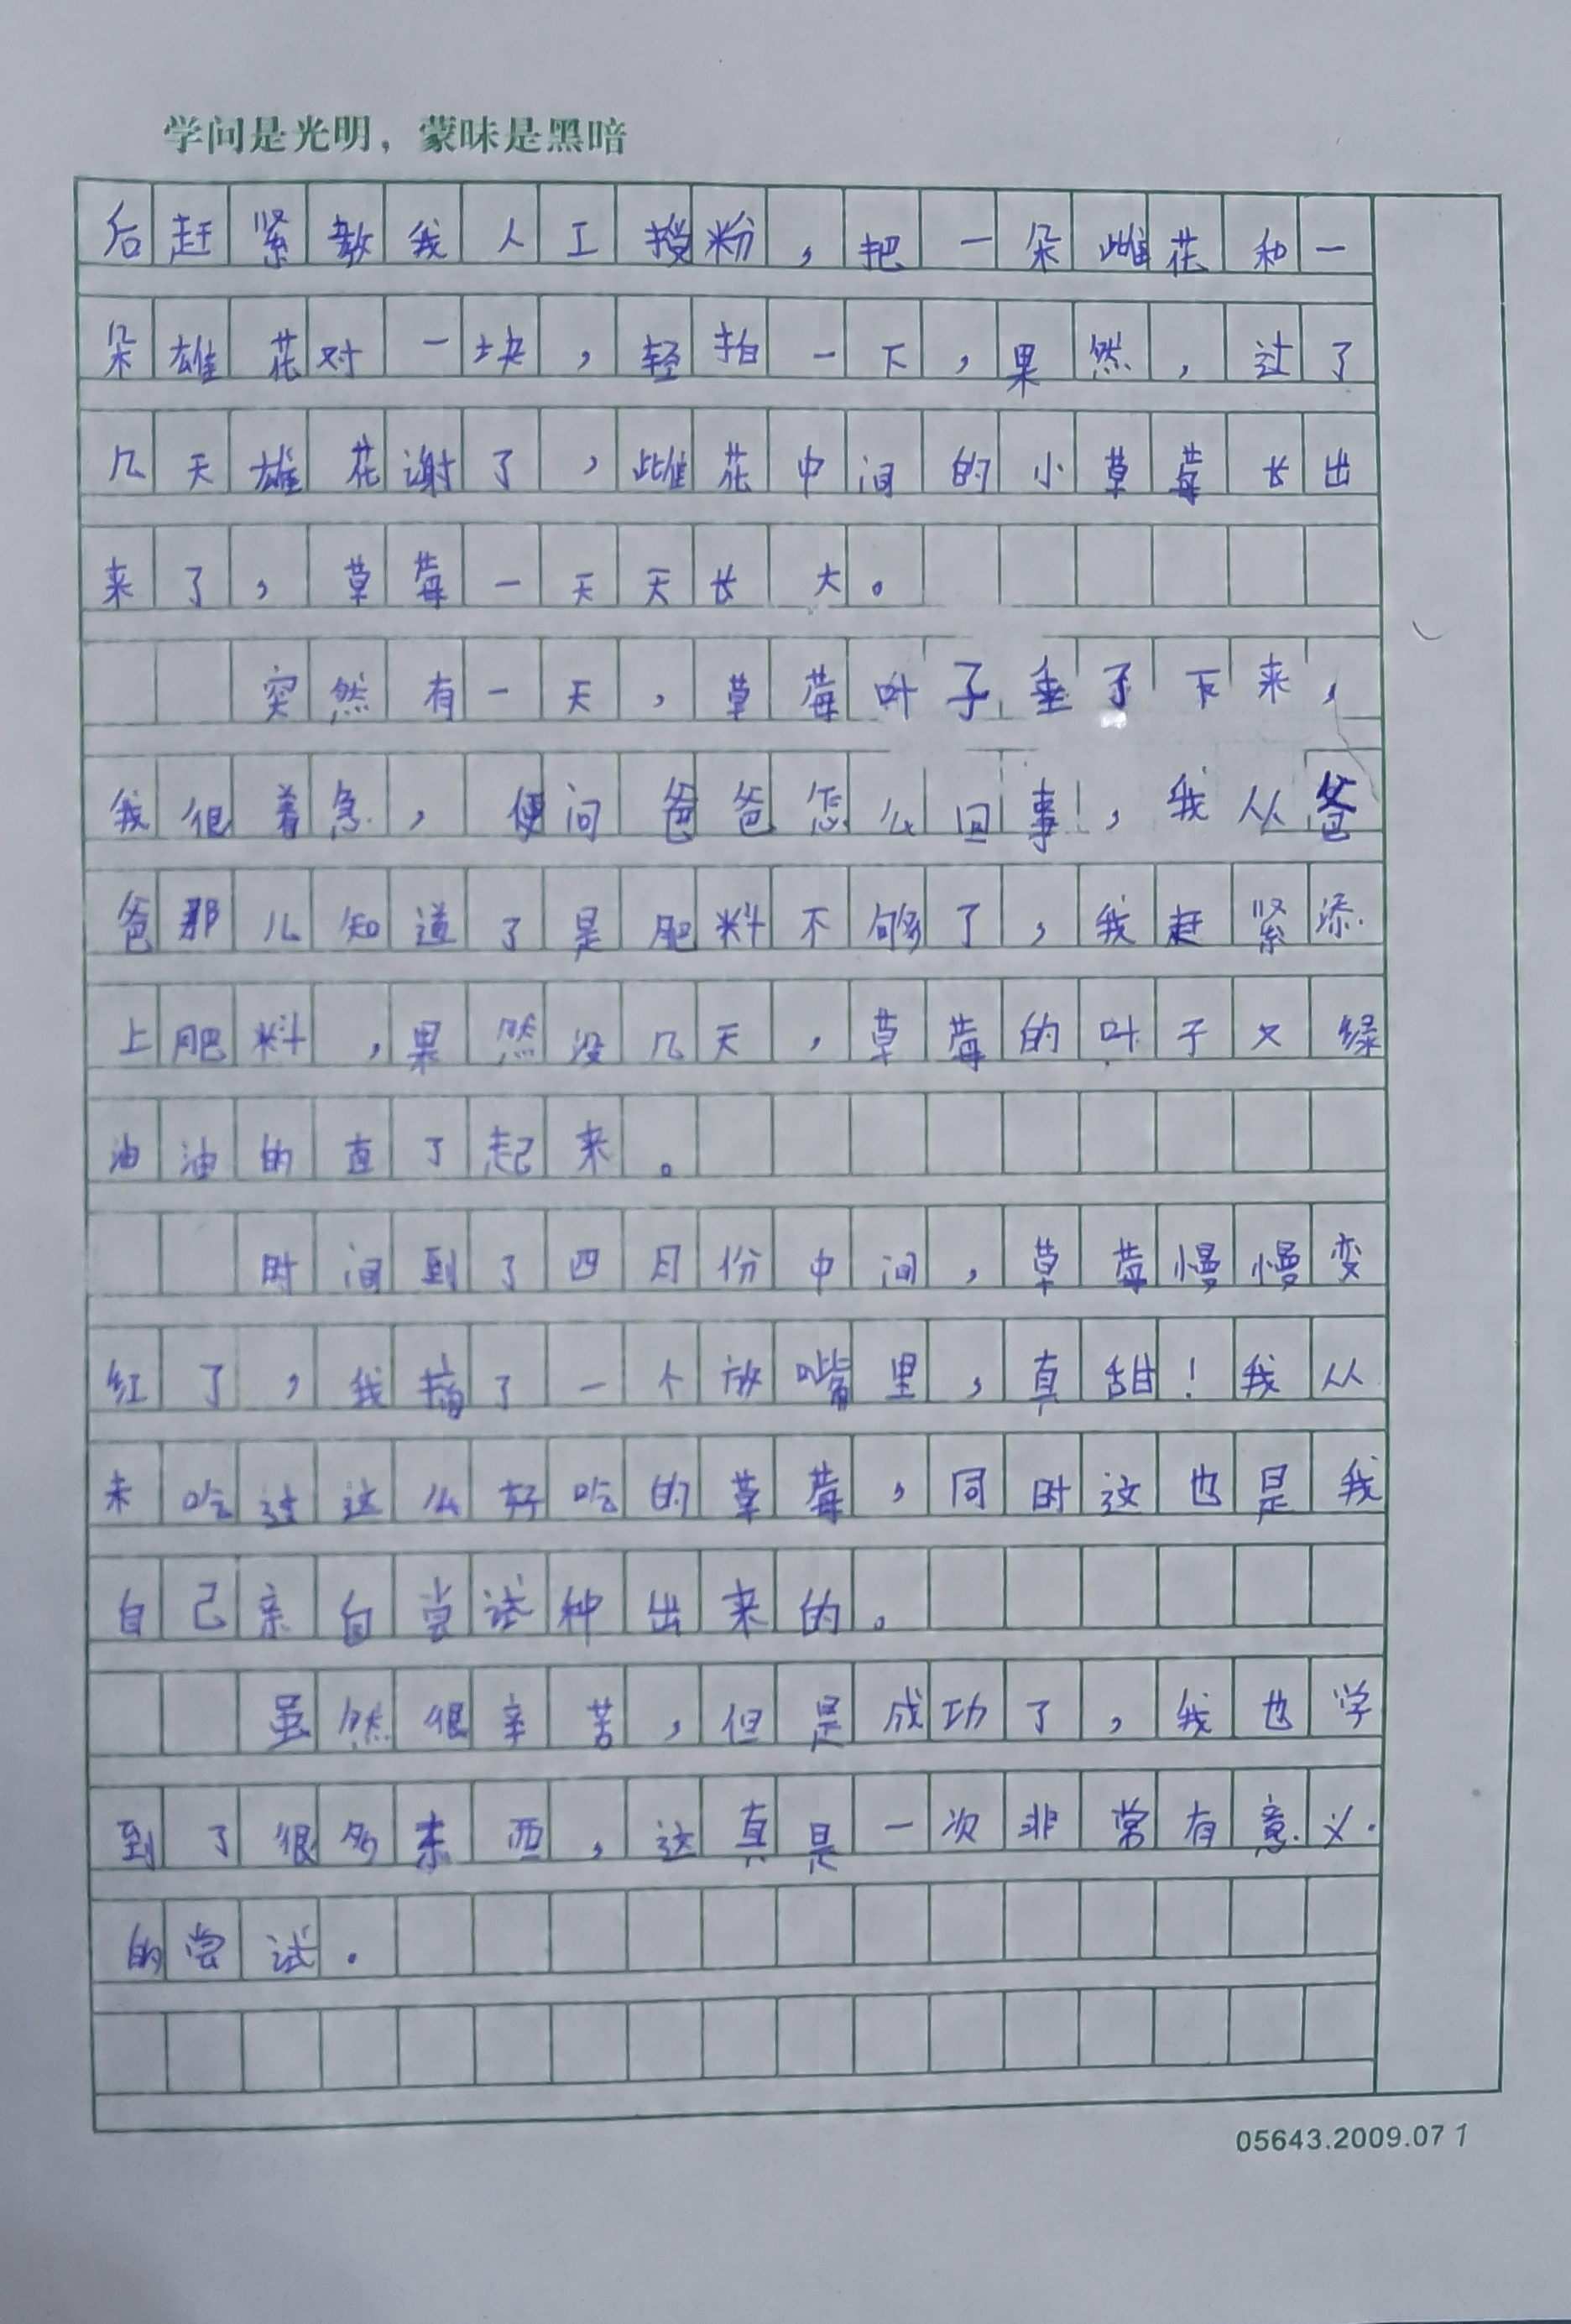 学问是光明，蒙昧是黑暗
后赶紧教我人工授粉，把一朵雌花和一
朵雄花对一块，轻拍一下，果然，过了
几天雄花谢了，雌花中间的小草莓长出
来了，草莓一天天长大。
突然有一天，草莓叶子垂了下来，
我很着急，便问爸爸怎么回事，我从爸
爸那儿知道了是肥料不够了，我赶紧添
上肥料，果然没几天，草莓的叶子又绿
油油的直了起来。
时间到了四月份中间，草莓慢慢变
红了，我摘了一个放嘴里，真甜！我从
未吃过这么好吃的草莓，同时这也是我
自己亲自尝试种出来的。
虽然很辛苦，但是成功了，我也学
到了很多东西，这真是一次非常有意义
的尝试。
05643.2009.07 1